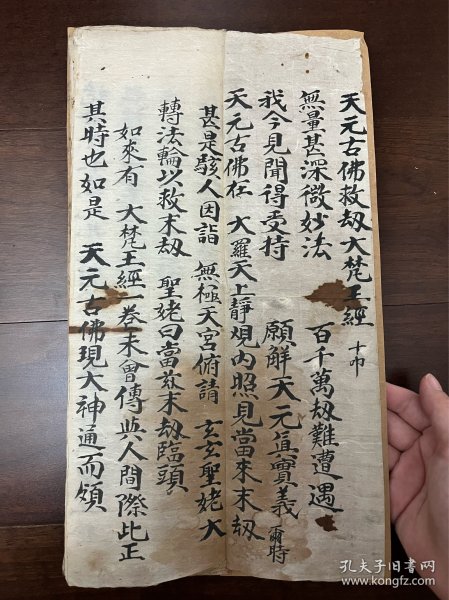 天元古佛救劫大梵王經 十卩
無量甚深微妙法 百千萬劫難遭遇
我今見聞得受持 願解天元真實義 爾時
天元古佛在 大羅天上靜观内照見當來末劫
甚是駭人因詣 無極天宮俯請 玄玄聖姥大
轉法輪以救末劫 聖姥曰當兹末劫臨頭
如來有 大梵王經一卷未曾傳與人間際此正
其時也如是 天元古佛現大神通而領
孔夫子旧书网
kongfz.com